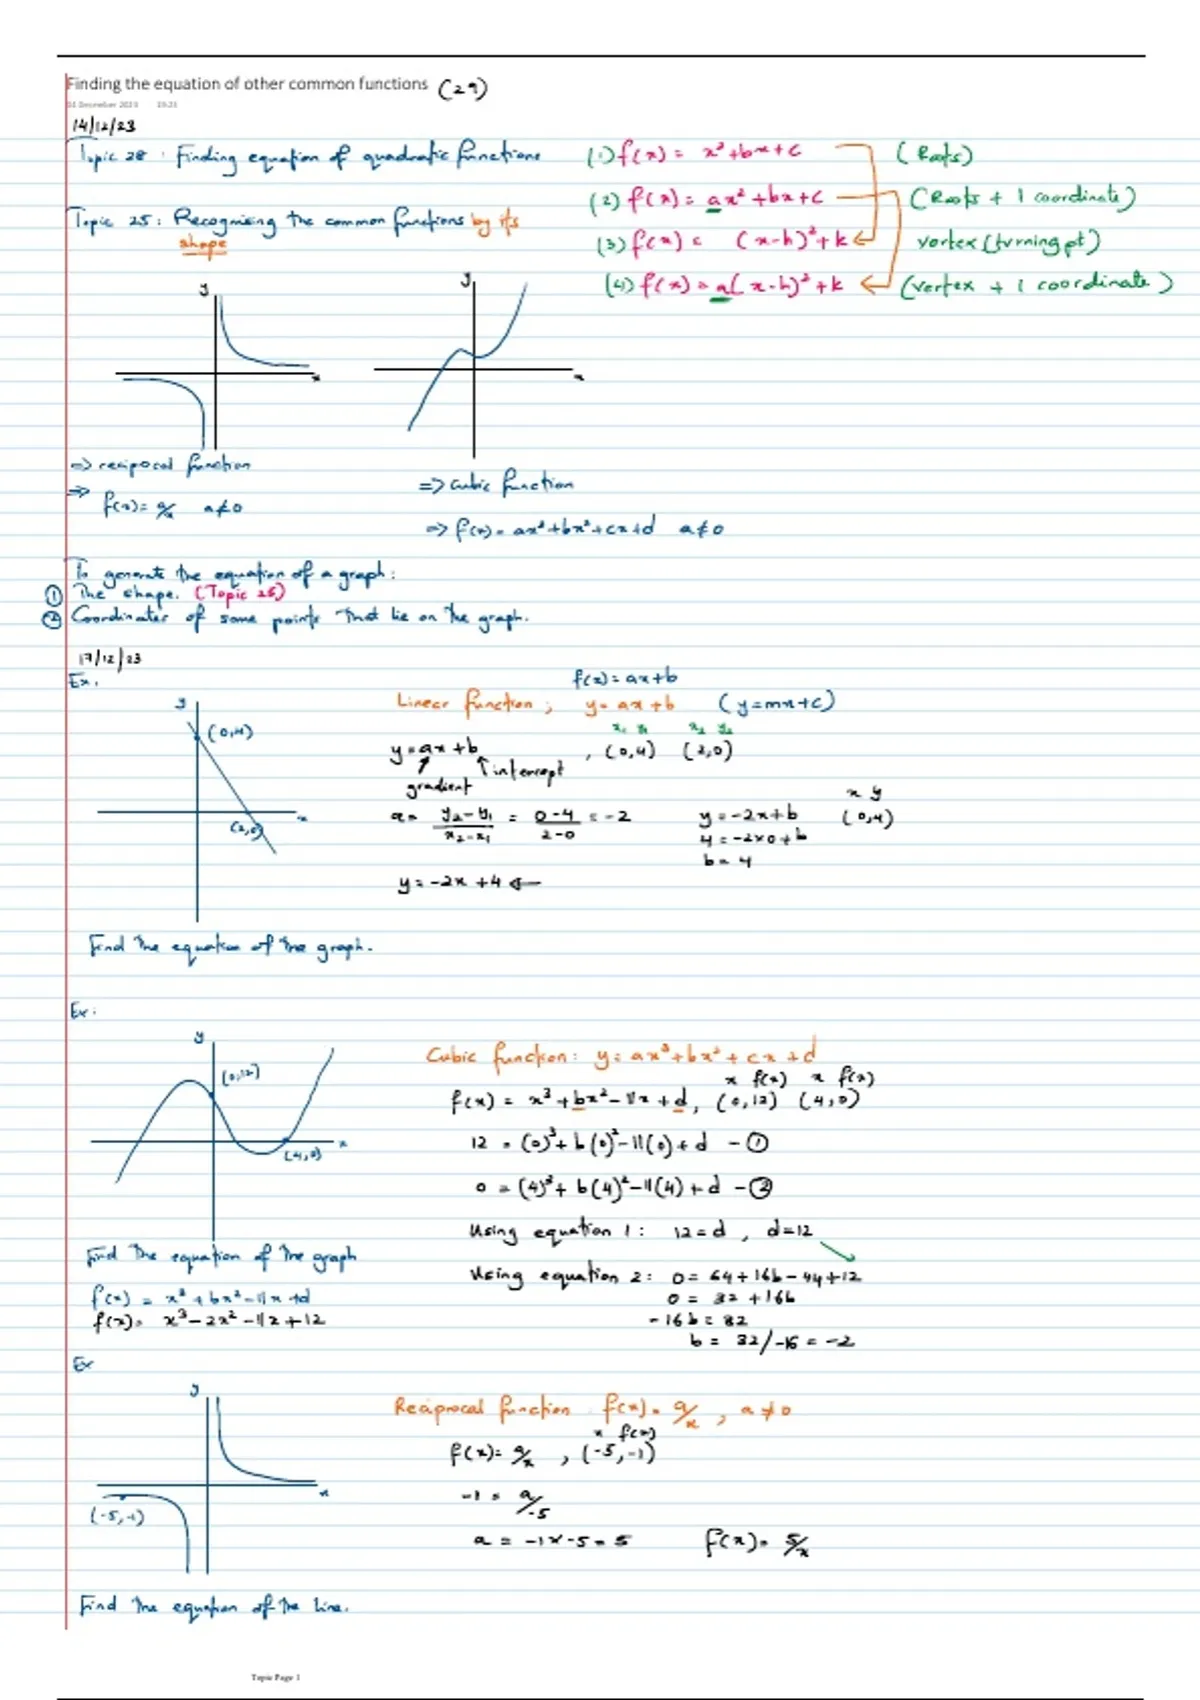 Finding the equation of other common functions (29)
04 December 2023 19:23
14/12/23
Topic 28 : Finding equation of quadratic functions
(1) f(x) = x²+bx+c (Roots)
(2) f(x) = ax²+bx+c (Roots + 1 coordinate)
Topic 25 : Recognising the common functions by its shape
(3) f(x) = (x-h)²+k vertex (turning pt)
(4) f(x) = a(x-h)²+k (vertex + 1 coordinate)
y
x
y
x
=> reciprocal function
=> f(x) = a/x a≠0
=> cubic function
=> f(x) = ax³+bx²+cx+d a≠0
To generate the equation of a graph:
① The shape. (Topic 25)
② Coordinates of some points that lie on the graph.
17/12/23
Ex.
f(x) = ax+b
Linear function ; y = ax+b (y=mx+c)
x₁ y₁ x₂ y₂
y = ax+b , (0,4) (2,0)
gradient intercept
y
(0,4)
(2,0)
x
a = y₂-y₁/x₂-x₁ = 0-4/2-0 = -2
x y
y = -2x+b (0,4)
4 = -2x0+b
b = 4
y = -2x+4
Find the equation of the graph.
Ex:
y
(0,12)
(4,0)
x
Cubic function: y = ax³+bx²+cx+d
x f(x) x f(x)
f(x) = x³+bx²-11x+d, (0,12) (4,0)
12 = (0)³+b(0)²-11(0)+d - ①
0 = (4)³+b(4)²-11(4)+d - ②
Using equation 1: 12=d , d=12
Using equation 2: 0 = 64+16b-44+12
0 = 32+16b
-16b = 32
b = 32/-16 = -2
Find the equation of the graph
f(x) = x³+bx²-11x+d
f(x) = x³-2x²-11x+12
Ex
y
x
(-5,-1)
Reciprocal function f(x) = a/x , a≠0
x f(x)
f(x) = a/x , (-5,-1)
-1 = a/-5
a = -1x-5 = 5 f(x) = 5/x
Find the equation of the line.
Topic Page 1